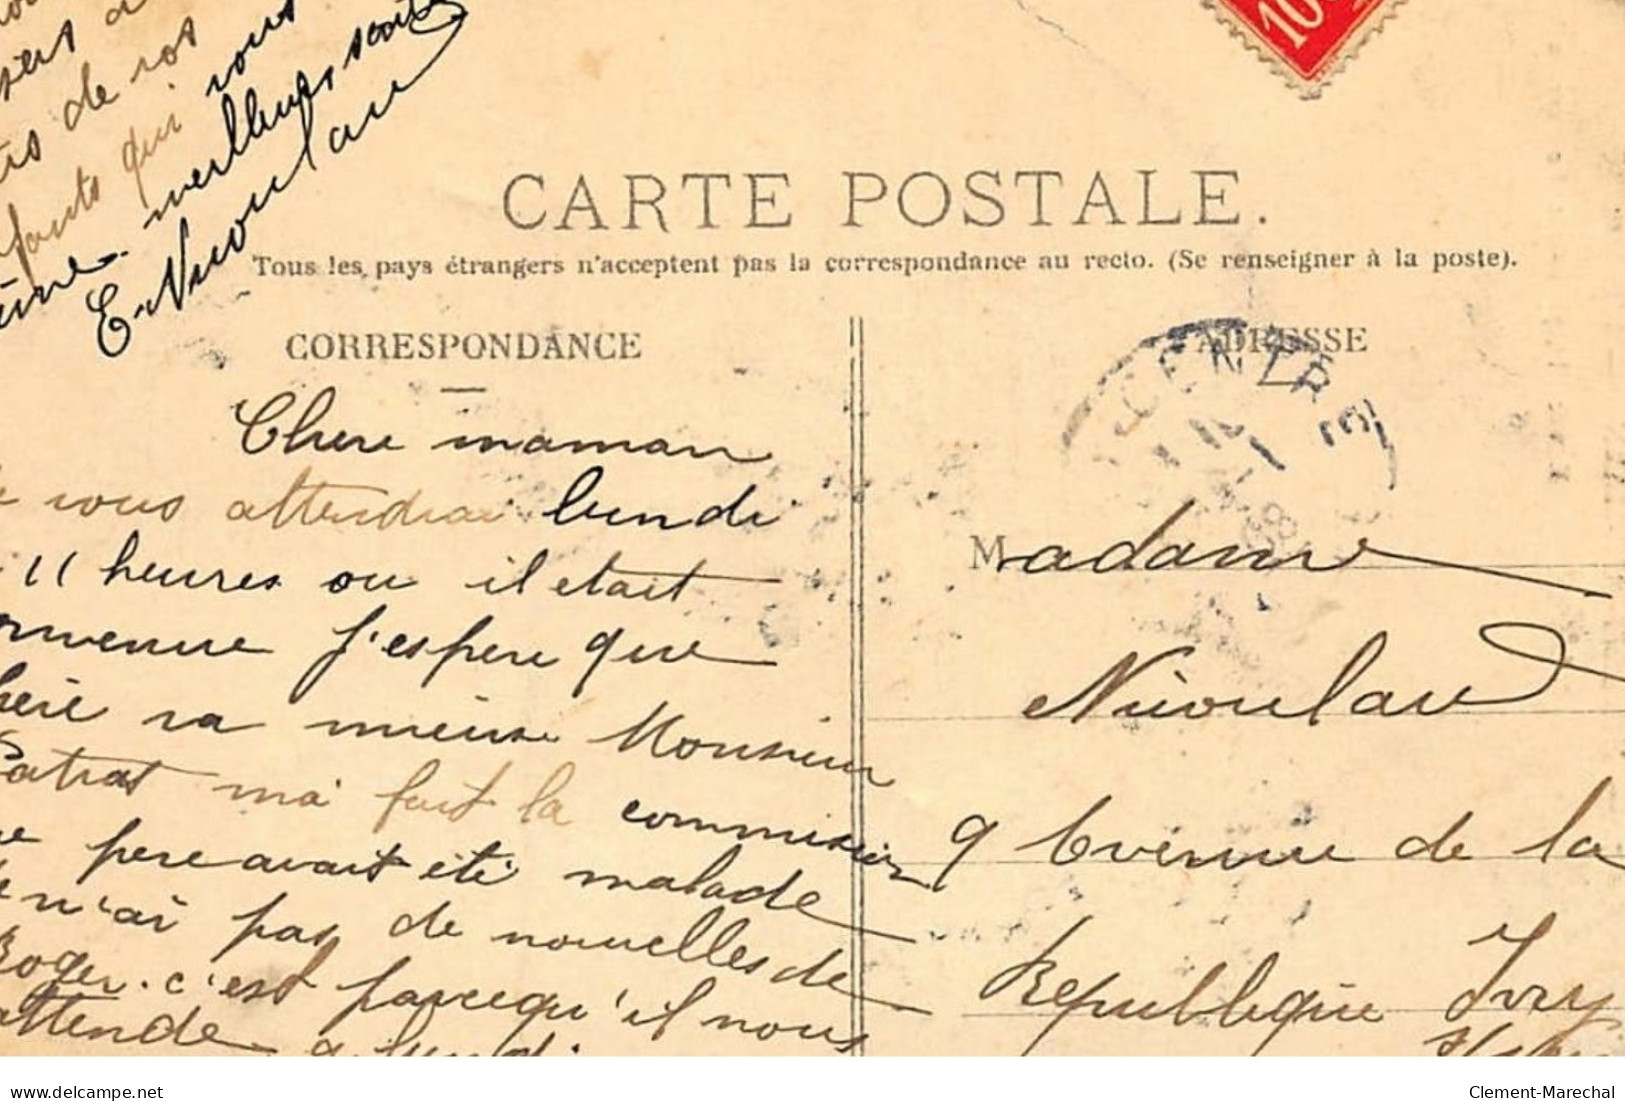 de vos
qui vous
E. Nivoulau
10
CARTE POSTALE.
Tous les pays étrangers n'acceptent pas la correspondance au recto. (Se renseigner à la poste).
CORRESPONDANCE
ADRESSE
CENTRE
Chere maman
vous attendrai lundi
11 heures ou il etait
j'espere que
va mieuse Monsieur
ma fait la commission
pere avait été malade
n'ai pas de nouvelles de
Roger. c'est parcequ'il nous
attende a lundi
Madame
Nivoulau
9 Avenue de la
Republique Ivry
www.delcampe.net
Clement-Marechal